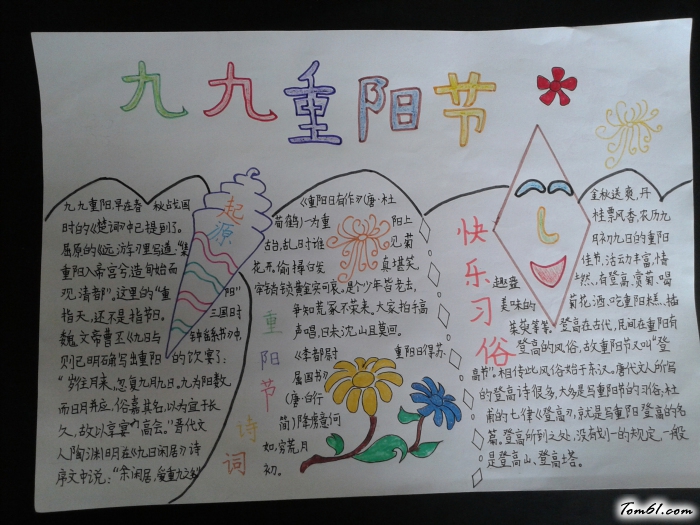 九九重阳节
起源
九九重阳,早在春 秋战国
时的《楚词》中已提到了。
屈原的《远游》里写道:"集
重阳入帝宫兮,造旬始而
观清都"。这里的"重 阳"
指天,还不是指节日。 三国时
魏文帝曹丕《九日与 钟繇书》中,
则已明确写出重阳 的饮宴了:
"岁往月来,忽复九月九日。九为阳数,
而日月并应,俗嘉其名,以为宜于长
久,故以享宴高会。"晋代文
人陶渊明在《九日闲居》诗
序文中说:"余闲居,爱重九之名
重阳节诗词
《重阳日有作》(唐·杜
荀鹤)一为重 阳上
古台,乱日时谁 见菊
花开。偷 白发 真堪笑,
黄金实可哀。是个少年皆老去,
争知荒冢不荣来。大家拍手高
声唱,日未沈山且莫回。
《李都尉 重阳日得苏
属国书》
(唐·白行
简)降虏意何
如,穷荒月
初。
快乐习俗
金秋送爽,丹
桂飘香,农历九
月初九日的重阳
佳节,活动丰富,情
趣盎 然,有登高、赏菊、喝
美味的 菊花酒、吃重阳糕、插
茱萸等等。登高在古代,民间在重阳有
登高的风俗,故重阳节又叫"登
高节"。相传此风俗始于东汉。唐代文人所写
的登高诗很多,大多是写重阳节的习俗;杜
甫的七律《登高》,就是写重阳登高的名
篇。登高所到之处,没有划一的规定,一般
是登高山、登高塔。
Tom61.com